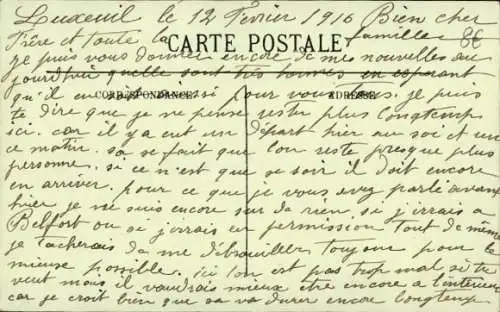 Luxeuil le 12 Fevrier 1916 Bien cher
Frère et toute la famille
8€
CARTE POSTALE
je puis vous donner encore de mes nouvelles au
jourdhui quelle sont très bonnes en esperant
qu'il en soit ainsi pour vous tous. je puis
CORRESPONDANCE
ADRESSE
te dire que je ne pense rester plus longtemp
ici. car il y a eut un départ hier au soir et un
ce matin. sa se fait que l'on reste presque plus
personne. si ce n'est que ce soir il doit encore
en arriver. pour ce que je vous avez parlé avant
hier je ne suis encore sur de rien. si j'irrais a
Belfort ou si j'orrais en permission tout de même
je tacherais da me débrouiller toujour pour la
mieuse possible. ici l'on est pas trop mal si tu
veut mais il vaudrais mieux etre encore a l'interieur
car je croit bien que sa va durer encore longtemp